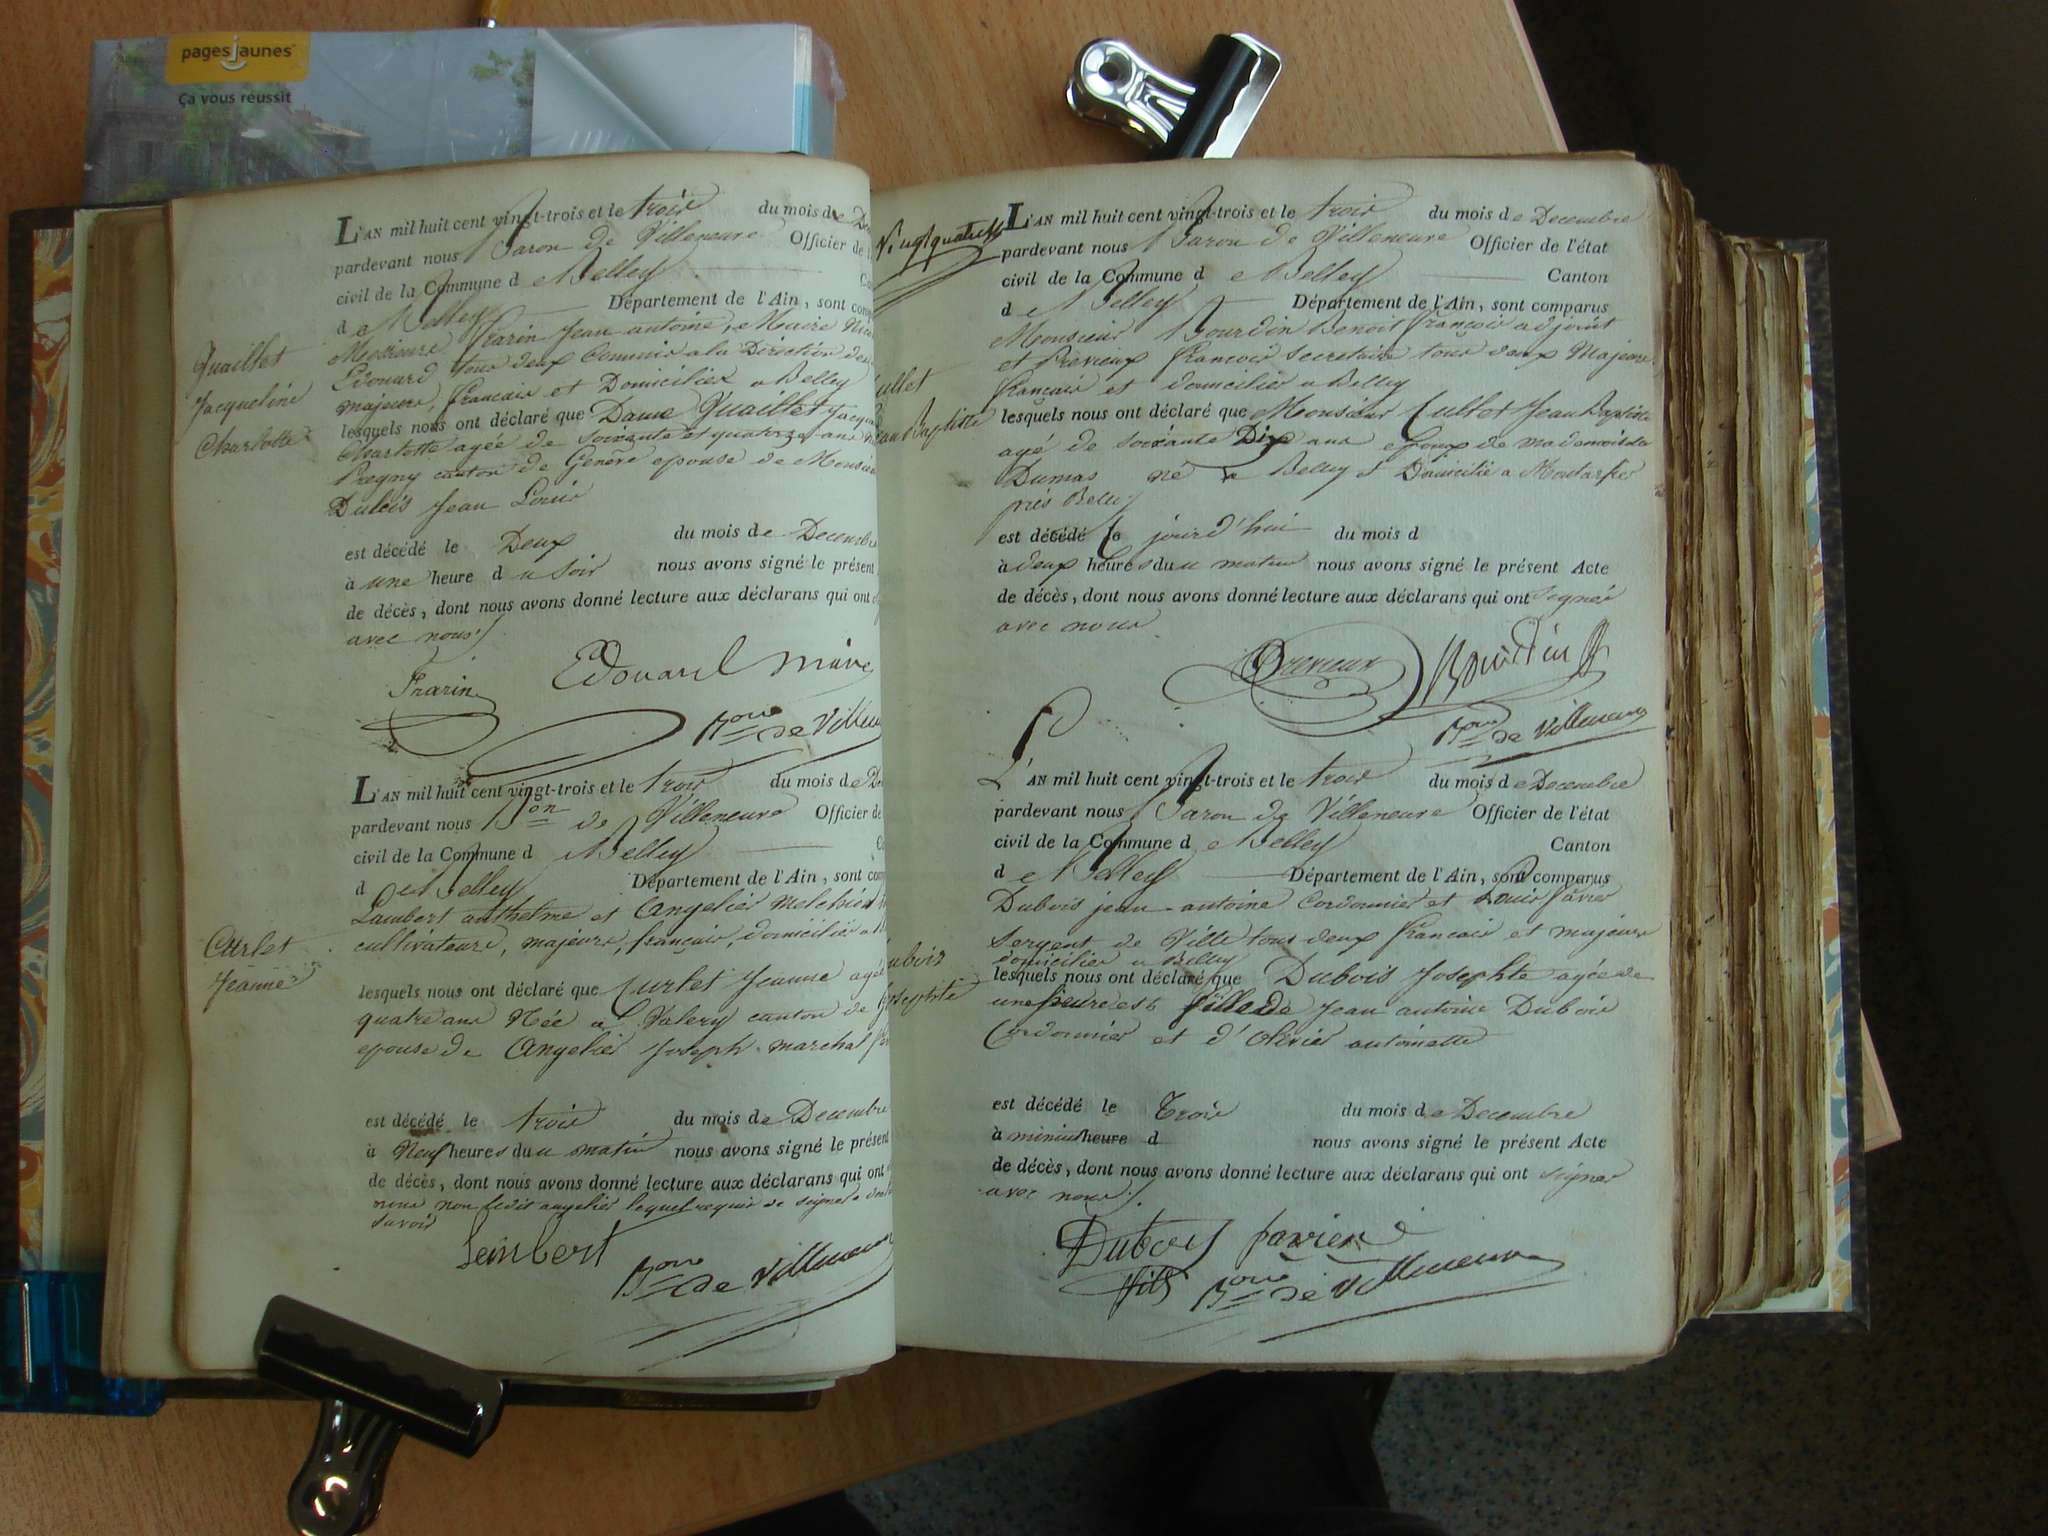 pagesjaunes
Ça vous réussit
L'AN mil huit cent vingt-trois et le trois du mois de
pardevant nous Baron de Villeneuve Officier de
civil de la Commune de Belley
de Belley Département de l'Ain, sont
Messieurs Frarin Jean antoine,
Edouard tous deux Commis a la Direction
majeurs, français et Domiciliés a Belley
lesquels nous ont déclaré que Dame Quaillet
Charlotte agée de soixante et quatorze ans
Pregny canton de Genève epouse de
Jean Louis
est décédé le Deux du mois de Decembre
à une heure du soir nous avons signé le présent
de décès, dont nous avons donné lecture aux déclarans qui ont
avec nous
Quaillet
Jacqueline
Charlotte
Frarin
Edouard
Bon de Villeneuve
L'AN mil huit cent vingt-trois et le trois du mois de
pardevant nous Bon de Villeneuve Officier de
civil de la Commune de Belley
de Belley Département de l'Ain, sont
Lambert anthelme et Angelier
cultivateurs, majeurs, français, domiciliés a
lesquels nous ont déclaré que Curlet Jeanne
quatre ans Née a St Valery canton de
epouse de Angelier Joseph marchal
Curlet
Jeanne
est décédé le trois du mois de Decembre
à Neuf heures du matin nous avons signé le présent
de décès, dont nous avons donné lecture aux déclarans qui ont
nous non ledit angelier lequel requis de signer a
savoir
Lembert
Bon de Villeneuve
L'AN mil huit cent vingt-trois et le trois du mois de Decembre
pardevant nous Baron de Villeneuve Officier de l'état
civil de la Commune de Belley Canton
de Belley Département de l'Ain, sont comparus
Monsieur Bourdin Benoit françois adjoint
et Previeux françois secretaire tous deux Majeurs
français et domiciliés a Belley
lesquels nous ont déclaré que Monsieur Cullet Jean Baptiste
agé de soixante Dix ans epoux de mademoiselle
Dumas né a Belley & Domicilié a
près Belley
est décédé le jourd'hui du mois d
à deux heures du matin nous avons signé le présent Acte
de décès, dont nous avons donné lecture aux déclarans qui ont signés
avec nous
Previeux Bourdin
Bon de Villeneuve
L'AN mil huit cent vingt-trois et le trois du mois de Decembre
pardevant nous Baron de Villeneuve Officier de l'état
civil de la Commune de Belley Canton
de Belley Département de l'Ain, sont comparus
Dubois jean antoine Cordonnier et
Sergent de Ville tous deux francais et majeurs
domiciliés a Belley
lesquels nous ont déclaré que Dubois Josephte agée de
une heure est fille de Jean antoine Dubois
Cordonnier et d'Olivier antoinette
est décédé le Trois du mois de Decembre
à minuit heure d nous avons signé le présent Acte
de décès, dont nous avons donné lecture aux déclarans qui ont signer
avec nous
Duboy
fils
Bon de Villeneuve